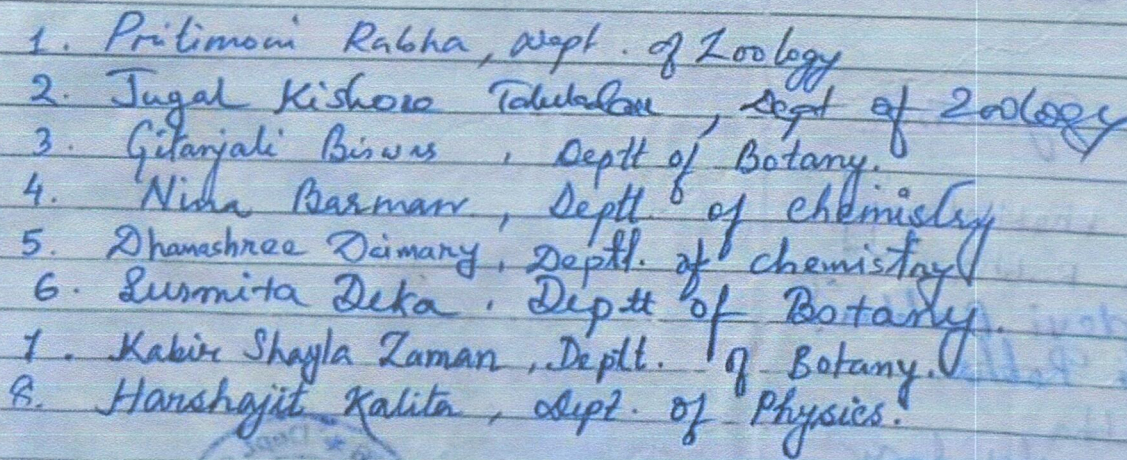 1. Pritimoni Rabha, Dept. of Zoology
2. Jugal Kishore Talukdar, Dept of Zoology
3. Gitanjali Biswas, Deptt of Botany.
4. Nina Barman, Deptt. of chemistry
5. Dhanashree Daimary, Deptt. of chemistry
6. Susmita Deka, Deptt of Botany.
7. Kabir Shayla Zaman, Deptt. of Botany.
8. Harshajit Kalita, Dept. of Physics.